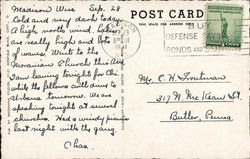 Madison Wisc Sep. 28
Cold and very dark today.
A high north wind. Lakes
are really high and lots
of waves. Went to the
Moravian Church this Am
am leaving tonight for Chi
while the fellows will drive to
Urbana tomorrow. We are
speaking tonight at several
churches. Had a windy picnic
last night with the gang.
Chas.
POST CARD
DEFENSE SAVINGS
BONDS AND
Mr. C. H. Troutman
317 N. McKean St.
Butler, Penna.